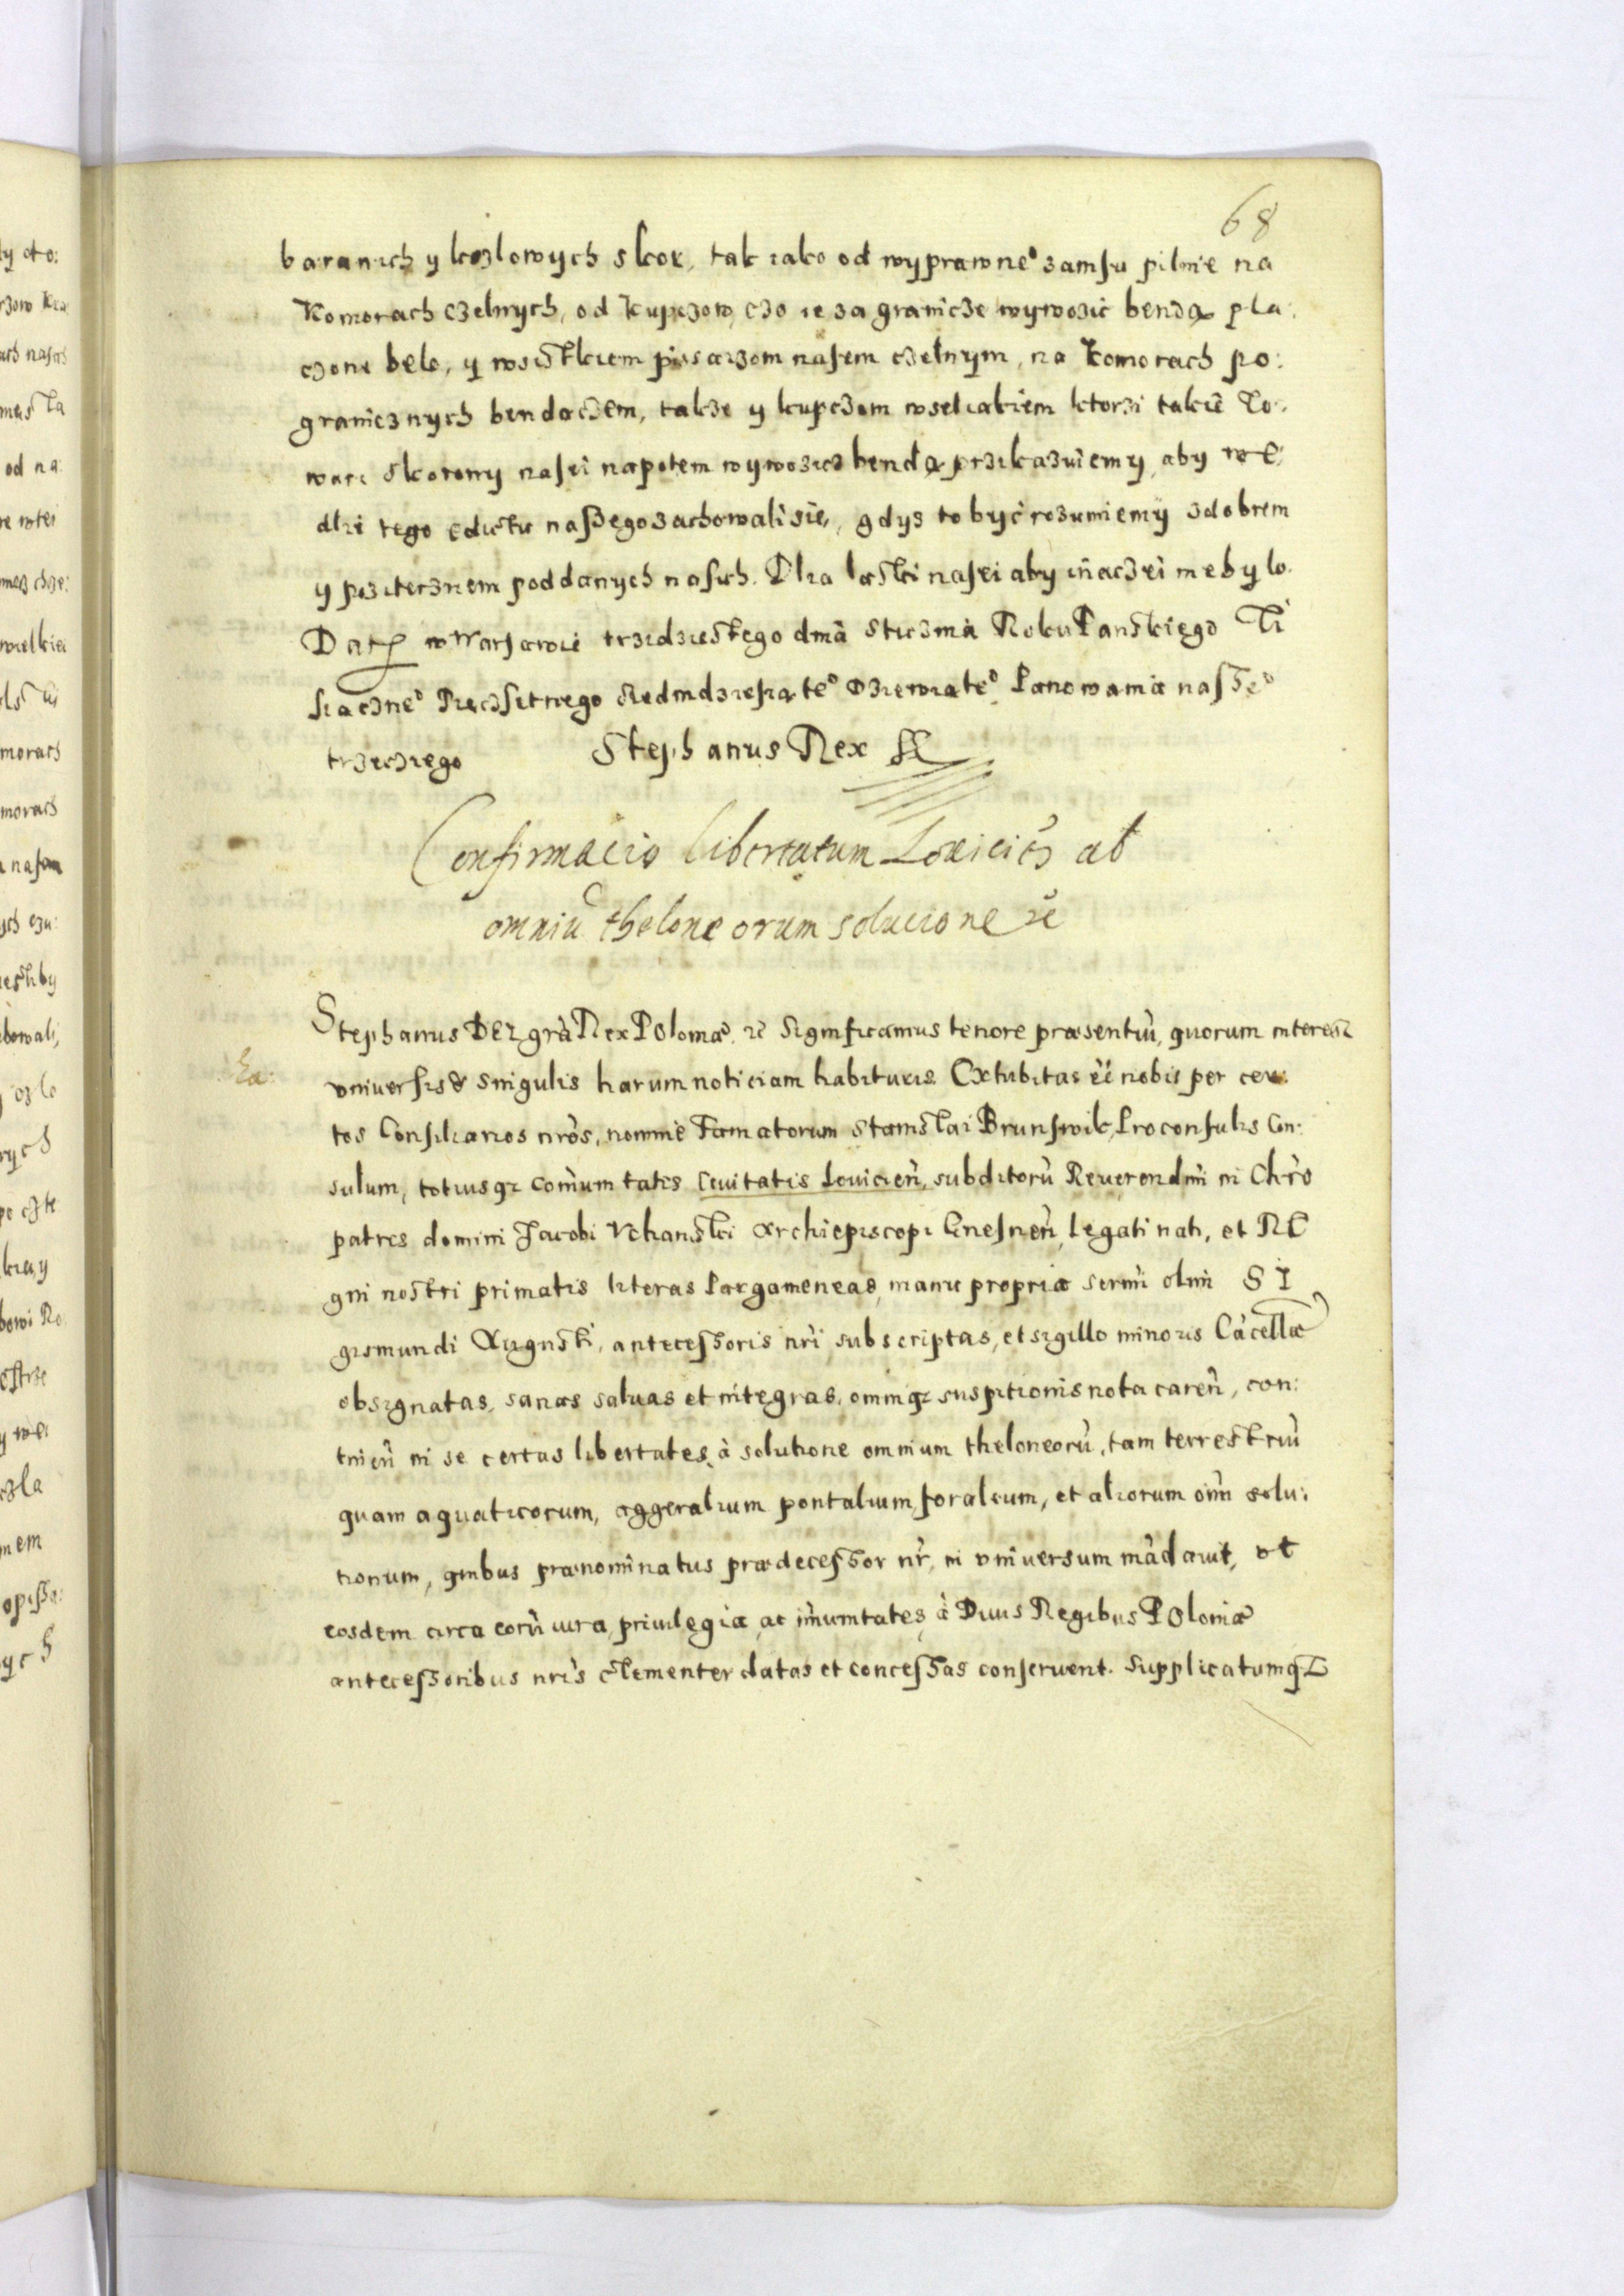 68
baranich y kozlowych skor, tak iako od wyprawneº zamsu pilnie na
Komorach czelnych, od kupczow, czo ie za granicze wywozic bendą pla:
czone belo, y wsistkiem pissarzom nasem czelnym, na komorach po:
granicznych bendączem, takze y kupczom wseliakiem ktorzi takie To:
wari skorony nasei napotem wywozicz bendą przikazuiemy, aby we:
dlie tego edictu naßego zachowali sie, gdys to być rozumiemy z dobrem
y pozitecznem poddanych nasich. Dlia laski nasei aby inaczei niebylo.
Dat w Warsawie trzidziestego dnia Sticznia Roku Panskiego Ti
siączneº Pieczsetnego siedmdziesiąteº Dziewiąteº Panowania nasseº
trzecziego Stephanus Rex
Confirmacio libertatum Louicień ab
omniũ theloneorum solucione ẽc
Stephanus DEI grà Rex Poloniæ ẽc Significamus tenore præsentiũ, quorum interest
ha: vniuersis & singulis harum noticiam habituris. Exhibitas ẽẽ nobis per cer:
tos Consiliarios nròs, nomine Famatorum Stanislai Brunswik, Proconsulis Con:
sulum, totiusqz comùnitatis Ciuitatis Louicień, subditorũ Reuerendmi in Chrò
patris domini Jacobi Vchanski Archiepiscopi Gnesneń, legati nati, et RE
gni nostri primatis literas Pargameneas, manu propria sermi olim SI
gismundi Augusti, antecessoris nri subscriptas, et sigillo minoris Càcellæ
obsignatas, sanas saluas et integras, omniqz suspitionis nota careń, con:
tineń in se certas libertates à solutione omnium theloneorũ, tam terrestriũ
quam aquaticorum, aggeralium pontalium, foralium, et aliorum oim solu:
tionum, quibus prænominatus prædecessor nr, in vniuersum màdauit, vt
eosdem circa eorũ iura, priuilegia, ac imunitates, à Diuis Regibus Poloniæ
antecessoribus nris clementer datas et concessas conseruent. Supplicatumqz